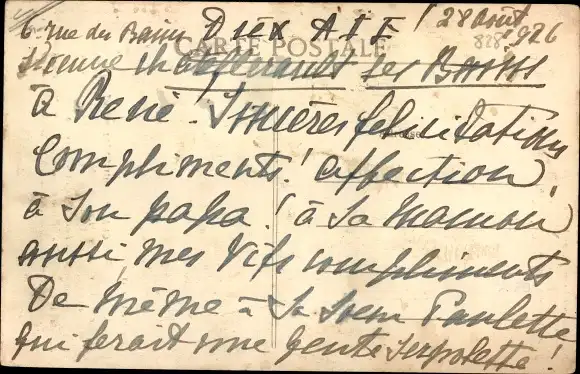 6 rue des Bains DIEX AIE ! 28 août 1926
CARTE POSTALE 828
Vienne Chatellerault les Bains
à René ! Sincères felicitations
Compliments ! affection !
à Son papa ! à Sa Maman
aussi mes vifs compliments
De même à Sa Soeur Paulette
qui ferait une gente Serpolette !